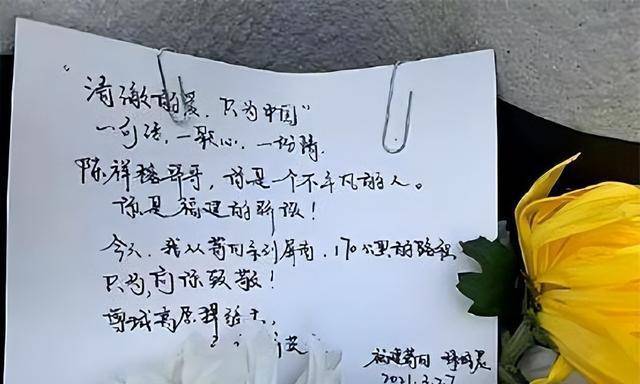 "清澈的爱,只为中国"
一句话,一颗心,一份情.
陈祥榕哥哥,你是一个不平凡的人。
你是福建的骄傲!
今天,我从莆田来到屏南,170公里的路程
只为,向你致敬!
域高原
英
福建莆田
2021.3.27